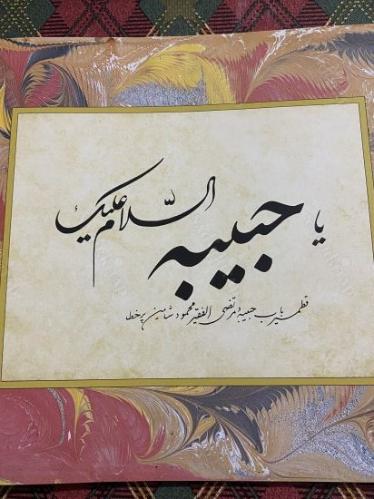 یا حبیبه السلام علیک
قطمیر باب حبیبه مرتضی الفقیر محمود